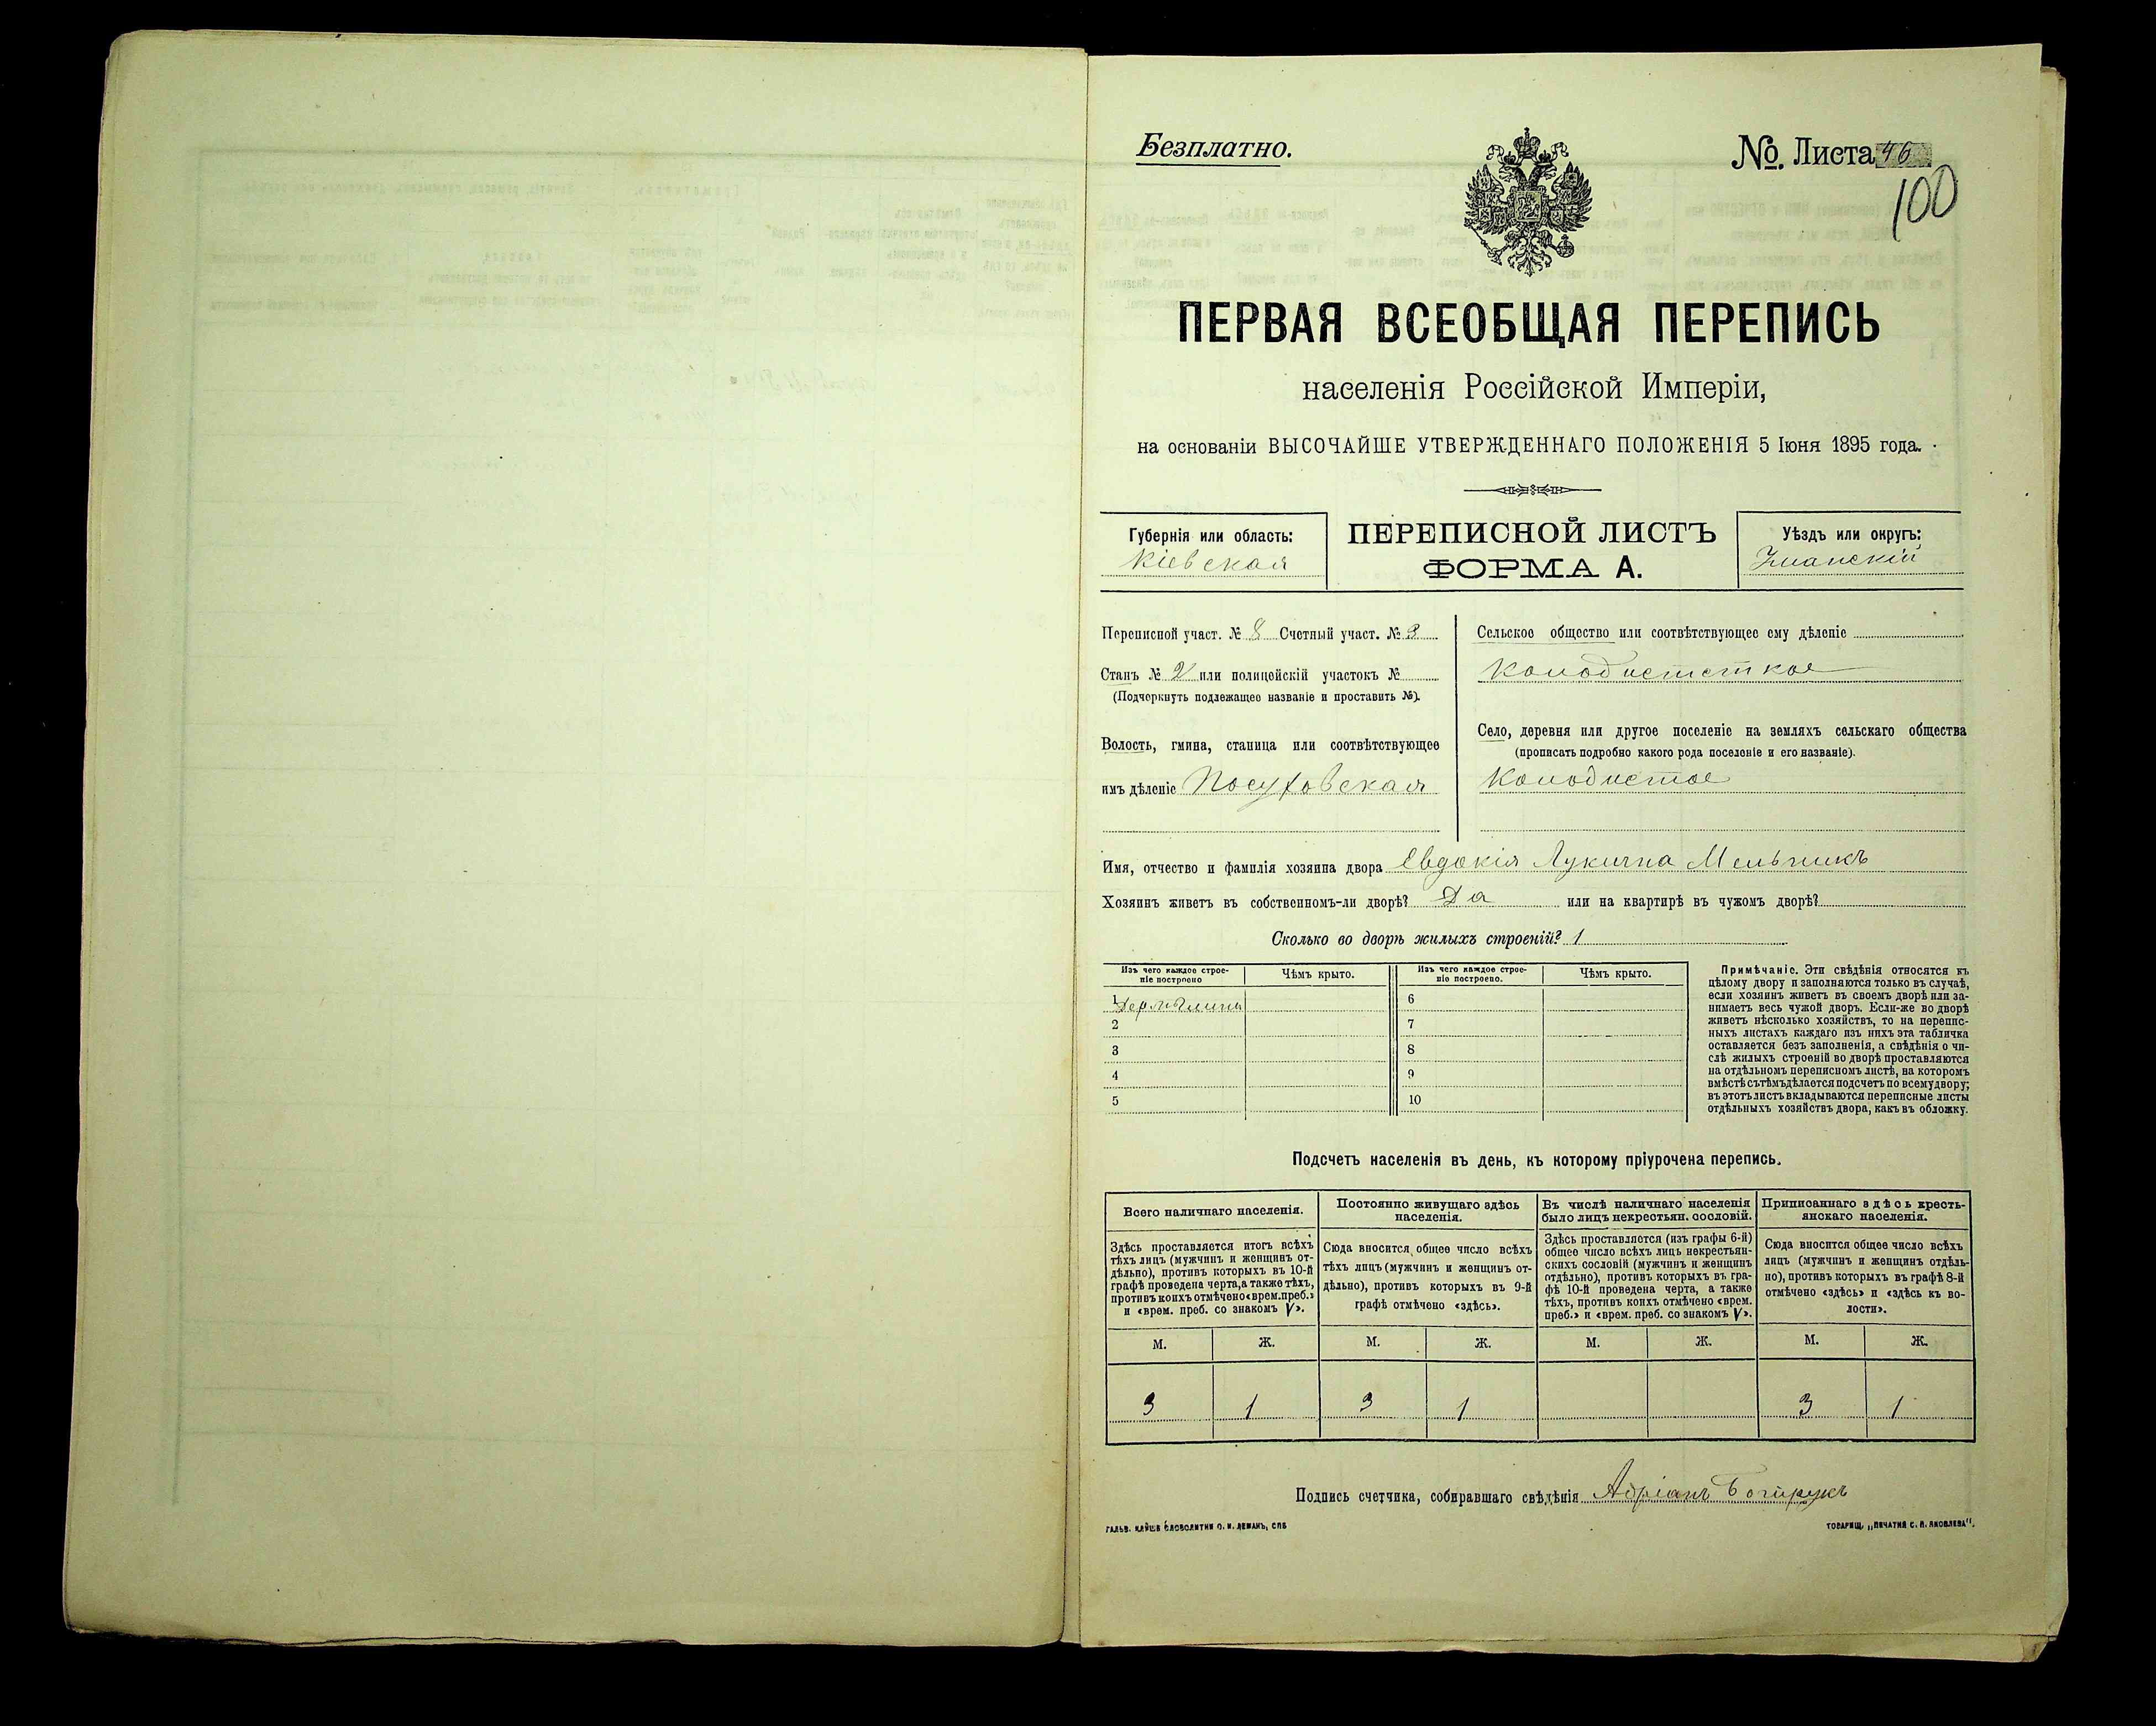 Безплатно.
№. Листа 46
100
ПЕРВАЯ ВСЕОБЩАЯ ПЕРЕПИСЬ
населенія Россійской Имперіи,
на основаніи ВЫСОЧАЙШЕ УТВЕРЖДЕННАГО ПОЛОЖЕНІЯ 5 Іюня 1895 года.
Губернія или область:
Кіевская
ПЕРЕПИСНОЙ ЛИСТЪ
ФОРМА А.
Уѣздъ или округъ:
Уманскій
Переписной участ. № 8 Счетный участ. № 3
Станъ № 2 или полицейскій участокъ №
(Подчеркнуть подлежащее названіе и проставить №).
Волость, гмина, станица или соотвѣтствующее
имъ дѣленіе Посуховская
Сельское общество или соотвѣтствующее ему дѣленіе
Колодистсткое
Село, деревня или другое поселеніе на земляхъ сельскаго общества
(прописать подробно какого рода поселеніе и его названіе).
Колодистое
Имя, отчество и фамилія хозяина двора Евдокія Лукична Мельникъ
Хозяинъ живетъ въ собственномъ-ли дворѣ? Да или на квартирѣ въ чужомъ дворѣ?
Сколько во дворѣ жилыхъ строеній? 1
Изъ чего каждое строе-
ніе построено
Чѣмъ крыто.
Изъ чего каждое строе-
ніе построено.
Чѣмъ крыто.
1
6
2
7
3
8
4
9
5
10
Примѣчаніе. Эти свѣдѣнія относятся къ
цѣлому двору и заполняются только въ случаѣ,
если хозяинъ живетъ въ своемъ дворѣ или за-
нимаетъ весь чужой дворъ. Если-же во дворѣ
живетъ нѣсколько хозяйствъ, то на перепис-
ныхъ листахъ каждаго изъ нихъ эта табличка
оставляется безъ заполненія, а свѣдѣнія о чи-
слѣ жилыхъ строеній во дворѣ проставляются
на отдѣльномъ переписномъ листѣ, на которомъ
вмѣстѣ съ тѣмъ дѣлается подсчетъ по всему двору;
въ этотъ листъ вкладываются переписные листы
отдѣльныхъ хозяйствъ двора, какъ въ обложку.
Подсчетъ населенія въ день, къ которому пріурочена перепись.
Всего наличнаго населенія.
Здѣсь проставляется итогъ всѣхъ
тѣхъ лицъ (мужчинъ и женщинъ от-
дѣльно), противъ которыхъ въ 10-й
графѣ проведена черта, а также тѣхъ,
противъ коихъ отмѣчено «врем. преб.»
и «врем. преб. со знакомъ V».
Постоянно живущаго здѣсь
населенія.
Сюда вносится общее число всѣхъ
тѣхъ лицъ (мужчинъ и женщинъ от-
дѣльно), противъ которыхъ въ 9-й
графѣ отмѣчено «здѣсь».
Въ числѣ наличнаго населенія
было лицъ некрестьян. сословій.
Здѣсь проставляется (изъ графы 6-й)
общее число всѣхъ лицъ некрестьян-
скихъ сословій (мужчинъ и женщинъ
отдѣльно), противъ которыхъ въ гра-
фѣ 10-й проведена черта, а также
тѣхъ, противъ коихъ отмѣчено «врем.
преб.» и «врем. преб. со знакомъ V».
Приписаннаго здѣсь кресть-
янскаго населенія.
Сюда вносится общее число всѣхъ
лицъ (мужчинъ и женщинъ отдѣль-
но), противъ которыхъ въ графѣ 8-й
отмѣчено «здѣсь» и «здѣсь къ во-
лости».
М. Ж. М. Ж. М. Ж. М. Ж.
3 1 3 1 3 1
Подпись счетчика, собиравшаго свѣдѣнія Адріанъ
ГАЛЬВ. КЛИШЕ СЛОВОЛИТНИ О. И. ЛЕМАНЪ, СПБ
ТОВАРИЩ. „ПЕЧАТНЯ С. П. ЯКОВЛЕВА".